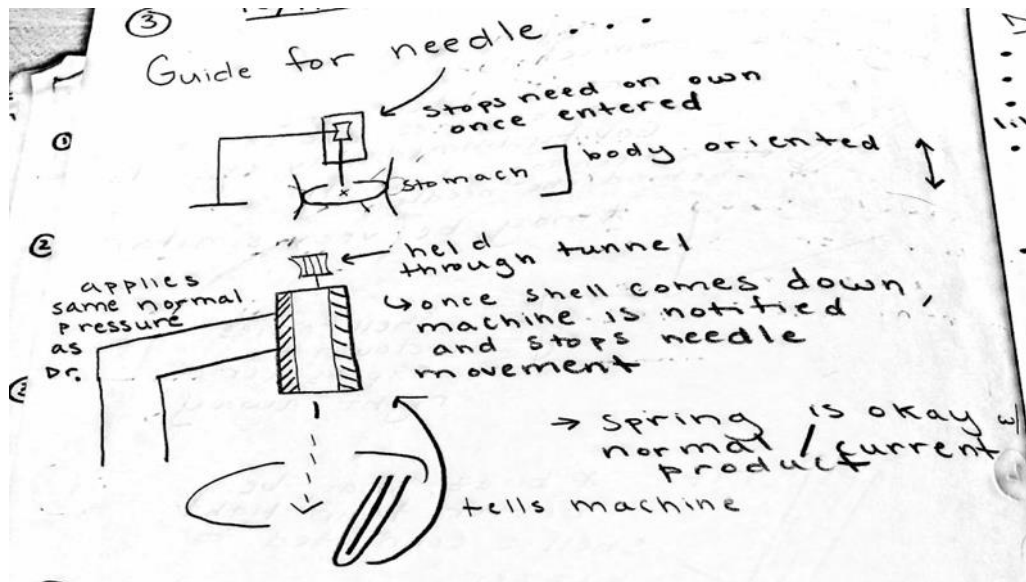 ③
Guide for needle....
stops need on own
once entered
①
stomach
body oriented
②
held
through tunnel
applies
same normal
pressure
as
Dr.
↳ once shell comes down,
machine is notified
and stops needle
movement
→ spring is okay w/
normal / current
product
tells machine